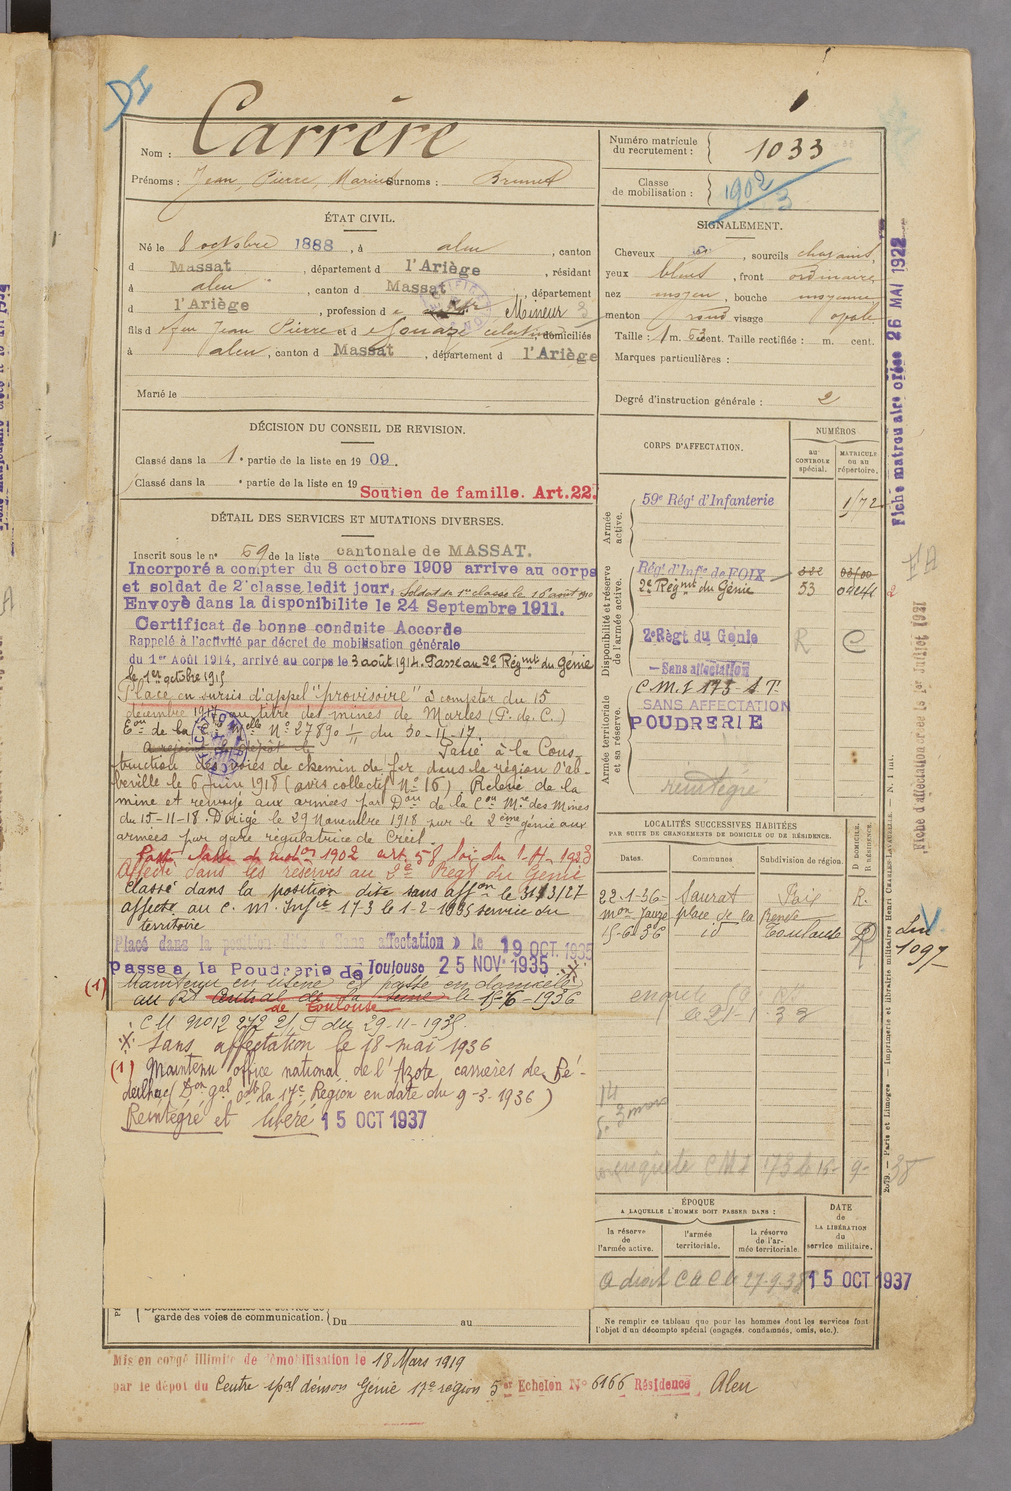 DI
Nom : Carrère
Prénoms : Jean, Pierre, Marius Surnoms : Brunet
Numéro matricule du recrutement : 1033
Classe de mobilisation : 1902
3
ÉTAT CIVIL.
Né le 8 octobre 1888, à aleu, canton
d Massat, département d l'Ariège, résidant
à aleu, canton d Massat, département
d l'Ariège, profession d Mineur
fils d feu Jean Pierre et d, domiciliés
à aleu, canton d Massat, département d l'Ariège
Marié le
SIGNALEMENT.
Cheveux, sourcils chatains,
yeux bleus, front ordinaire
nez moyen, bouche moyenne
menton rond visage ovale
Taille : 1 m. 63 cent. Taille rectifiée : m. cent.
Marques particulières :
Degré d'instruction générale : 2
DÉCISION DU CONSEIL DE REVISION.
Classé dans la 1e partie de la liste en 1909.
Classé dans la e partie de la liste en 19
Soutien de famille. Art. 22.
DÉTAIL DES SERVICES ET MUTATIONS DIVERSES.
Inscrit sous le n° 59 de la liste cantonale de MASSAT.
Incorporé a compter du 8 octobre 1909 arrive au corps
et soldat de 2e classe ledit jour. Soldat de 1re classe le 16 août 1910
Envoyé dans la disponibilite le 24 Septembre 1911.
Certificat de bonne conduite Accorde
Rappelé à l'activité par décret de mobilisation générale
du 1er Août 1914, arrivé au corps le 3 août 1914. Passé au 2e Régmt du Génie
le 1er octobre 1915
Placé en sursis d'appel "provisoire" à compter du 15
décembre 1917 au titre des mines de Marles (P. de C.)
Con de la Melle N° 27890 1/11 du 30-11-17.
Passé à la Cons-
truction des voies de chemin de fer dans la région d'ab-
beville le 6 Juin 1918 (avis collectif N° 16). Relevé de la
mine et renvoyé aux armées par Don de la Con Mre des Mines
du 15-11-18. Dirigé le 29 Novembre 1918 par le 2ème génie aux
armées par gare régulatrice de Creil
Passé classe de mobon 1902 art. 58 loi du 1-4-1923
Affecté dans les réserves au 2e Regt du Génie
Classé dans la position dite sans affon le 31/3/27
affecté au C. M. Infie 173 le 1-2-1935 service du
territoire
Placé dans la position dite « Sans affectation » le 19 OCT. 1935
passe a la Poudrerie de Toulouse 25 NOV 1935 .*.
(1) Maintenu en usine et passé en domicile
au Rt Central de la Seine le 15-6-1936
de Toulouse
CM N° 12272 2/ du 29-11-1935.
.*. Sans affectation le 18 mai 1936
(1) Maintenu office national de l'Azote carrières de Bé-
deilhac (Don gal Odb la 17e Région en date du 9-3-1936)
Réintégré et libéré 15 OCT 1937
CORPS D'AFFECTATION.
NUMÉROS
AU CONTROLE spécial.
MATRICULE ou au répertoire.
Armée active.
59e Régt d'Infanterie
1172
Disponibilité et réserve de l'armée active.
Régt d'Infie de FOIX
2e Régmt du Génie 53
2e Règt du Génie R C
Sans affectation
Armée territoriale et sa réserve.
C M I 173 - S.T.
SANS AFFECTATION
POUDRERIE
réintégré
LOCALITÉS SUCCESSIVES HABITÉES
PAR SUITE DE CHANGEMENTS DE DOMICILE OU DE RÉSIDENCE.
Dates. Communes Subdivision de région. D. DOMICILE. R. RÉSIDENCE.
22-1-36 Saurat Foix R.
mon Jauze place de la
15-6-36 id Toulouse
14
enquête CMI 173
ÉPOQUE
A LAQUELLE L'HOMME DOIT PASSER DANS :
la réserve de l'armée active.
l'armée territoriale.
la réserve de l'armée territoriale.
DATE de LA LIBÉRATION du service militaire.
27-9-38
15 OCT 1937
garde des voies de communication. Du au
Ne remplir ce tableau que pour les hommes dont les services font
l'objet d'un décompte spécial (engagés, condamnés, omis, etc.).
Mis en congé illimité de démobilisation le 18 Mars 1919
par le dépot du Centre spal démon Génie 17e région 5er Echelon N° 6166 Résidence Aleu
Fiche matriculaire créée 26 MAI 1922
Fiche d'affectation créée le 1er Juillet 1931
1097
2079. — Paris et Limoges. — Imprimerie et librairie militaires Henri CHARLES-LAVAUZELLE.